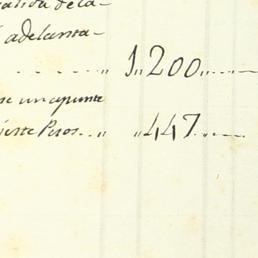 adelanta-
1,,200,,
se un apunte
siete Pesos... ,, ,,447,,